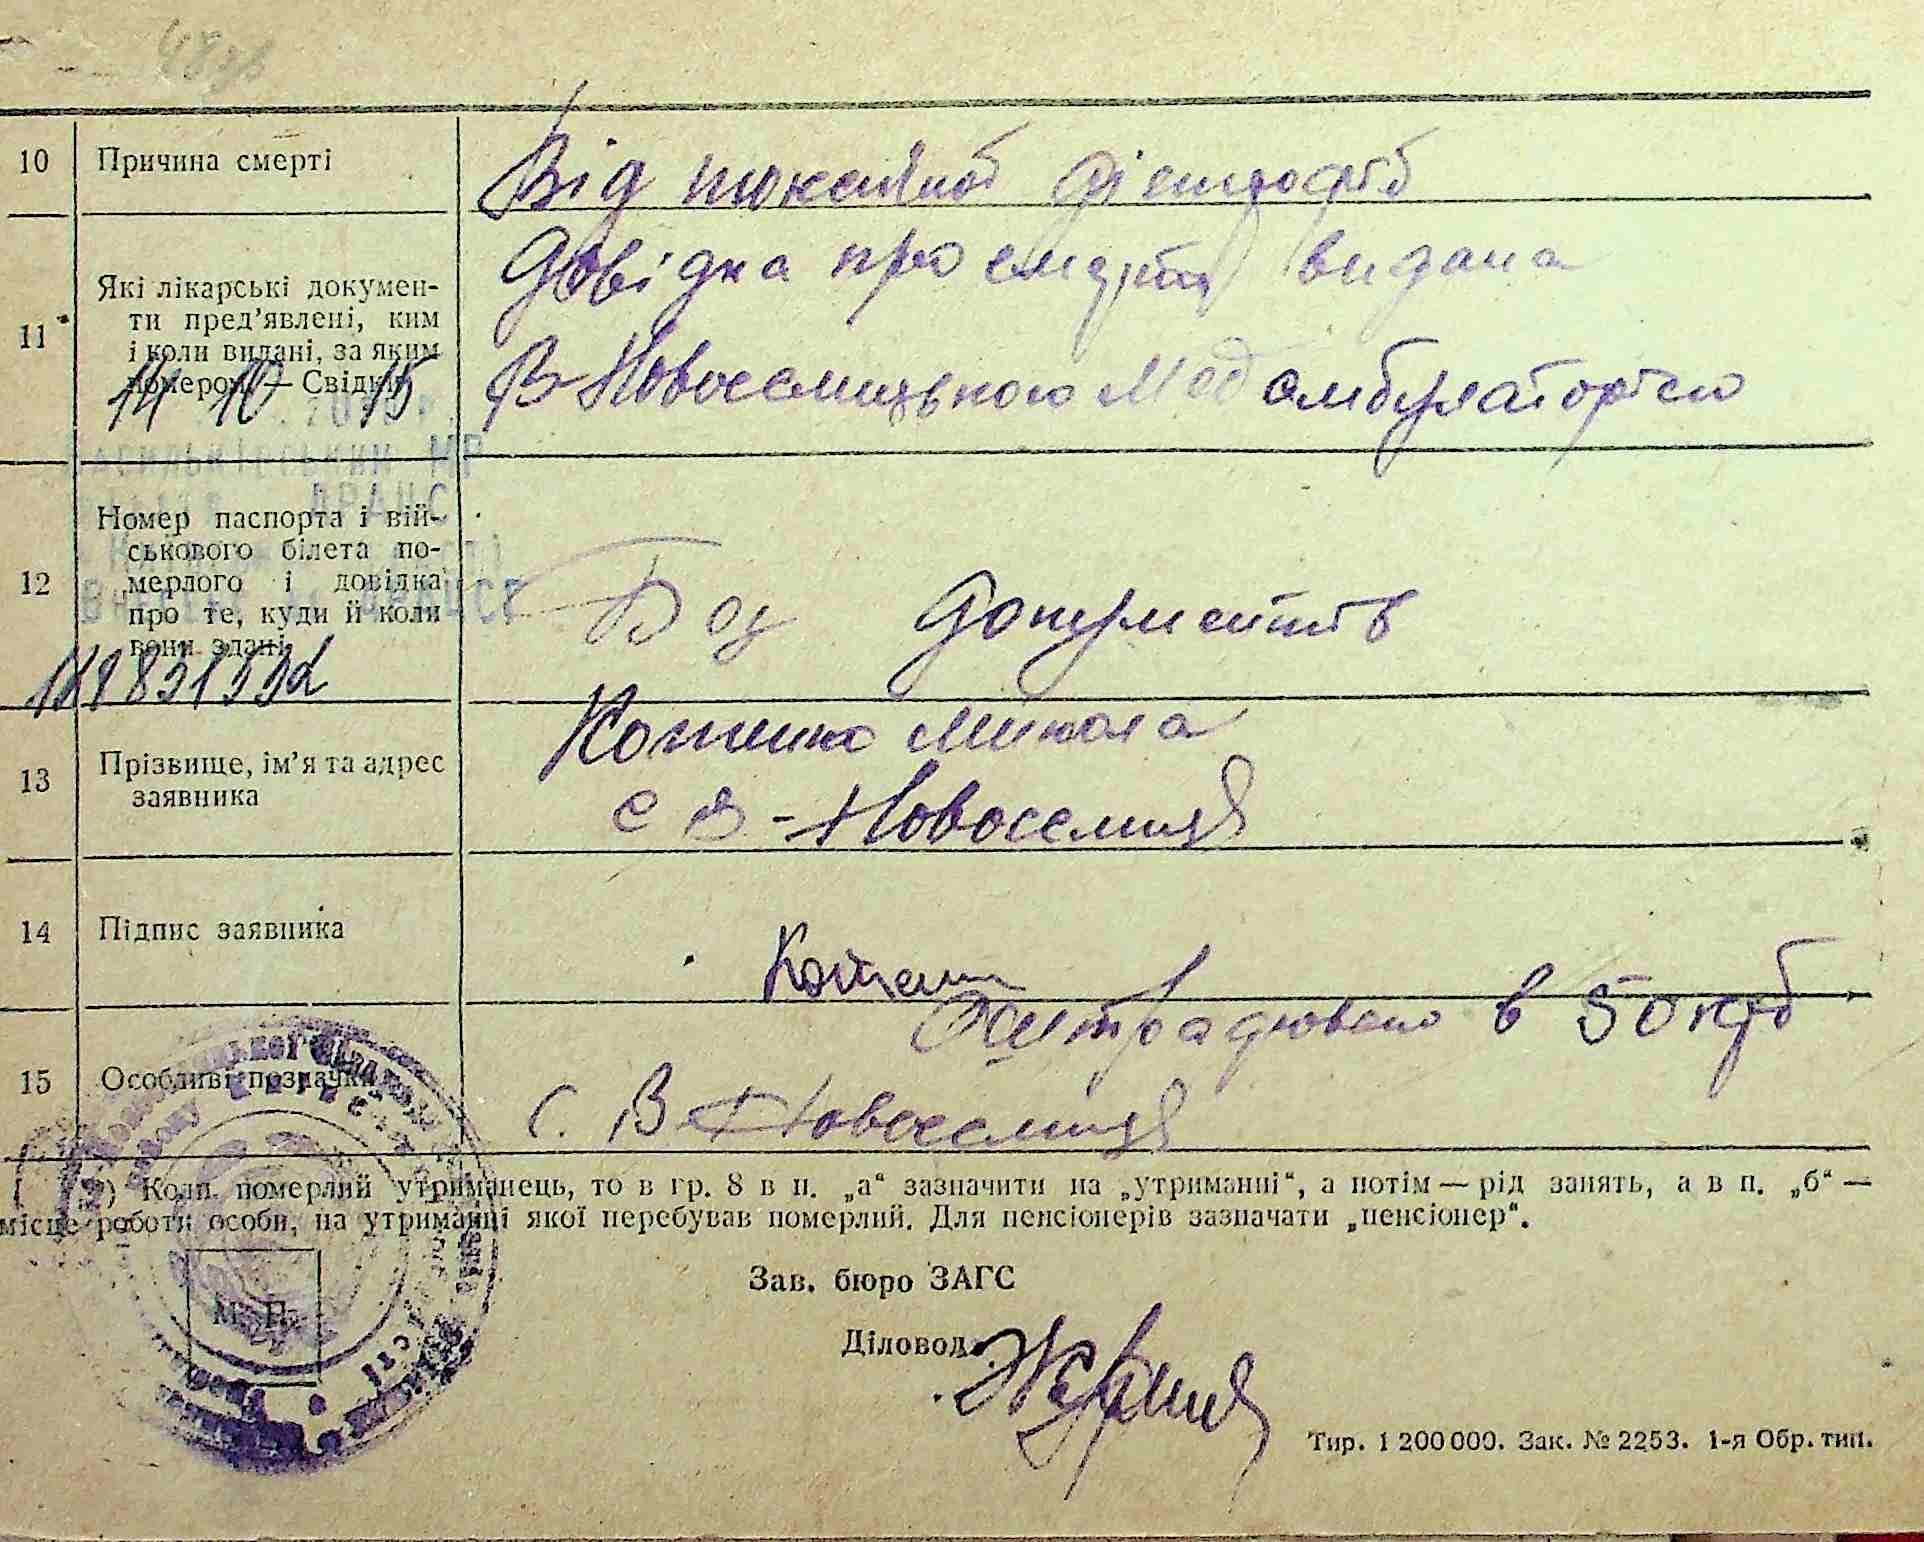 10 Причина смерті
Від токсичної дістрофіі
11 Які лікарські докумен-
ти пред'явлені, ким
і коли видані, за яким
номером — Свідки
14 10 15
Довідка про смерть видана
В-Новоселицькою Мед амбулаторією
МР
ДРАЦС
12 Номер паспорта і вій-
ськового білета по-
мерлого і довідка
про те, куди й коли
вони здані
Без документів
13 Прізвище, ім'я та адрес
заявника
Микола
с В-Новоселиця
14 Підпис заявника
15 Особливі позначки
Оштрафовано в 50 крб
с. В-Новоселиця
2) Коли померлий утриманець, то в гр. 8 в п. „а“ зазначити на „утриманні“, а потім — рід занять, а в п. „б“ —
місце роботи особи, на утриманні якої перебував померлий. Для пенсіонерів зазначати „пенсіонер“.
М. П.
Зав. бюро ЗАГС
Діловод
Тир. 1 200 000. Зак. № 2253. 1-я Обр. тип.